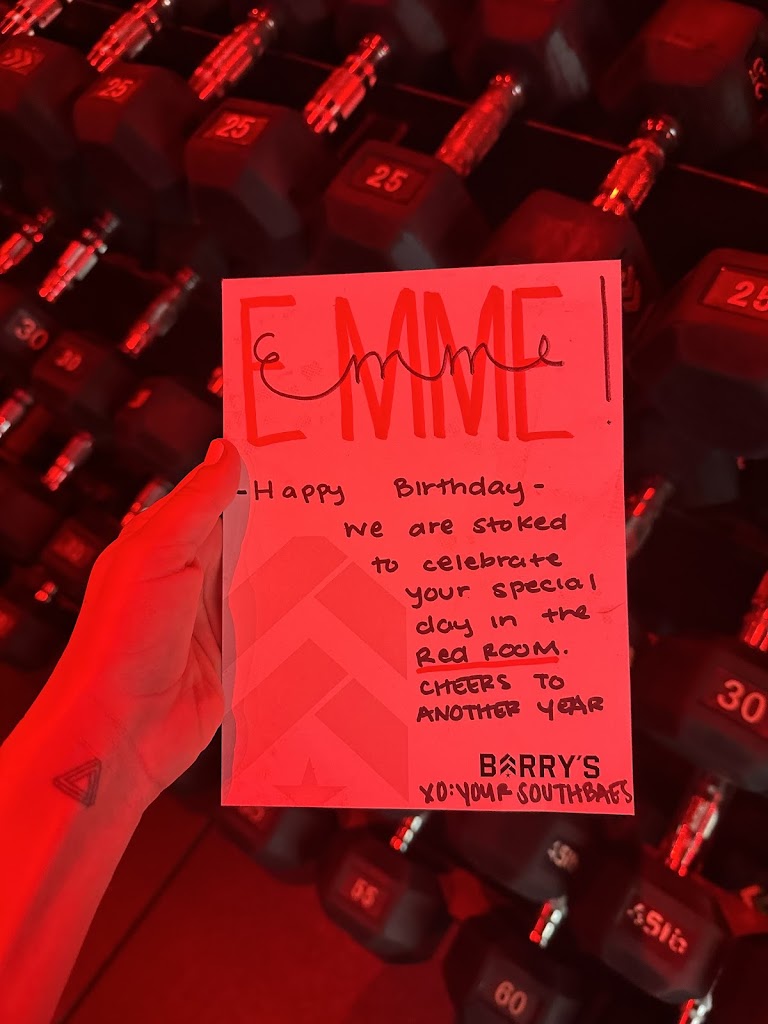 25
25
25
25
25
30
30
EMME!
Emme
-Happy Birthday-
we are stoked
to celebrate
your special
day in the
Red ROOM.
CHEERS TO
ANOTHER YEAR
BARRY'S
XO: YOUR SOUTHBAES
30
55
45lb
60